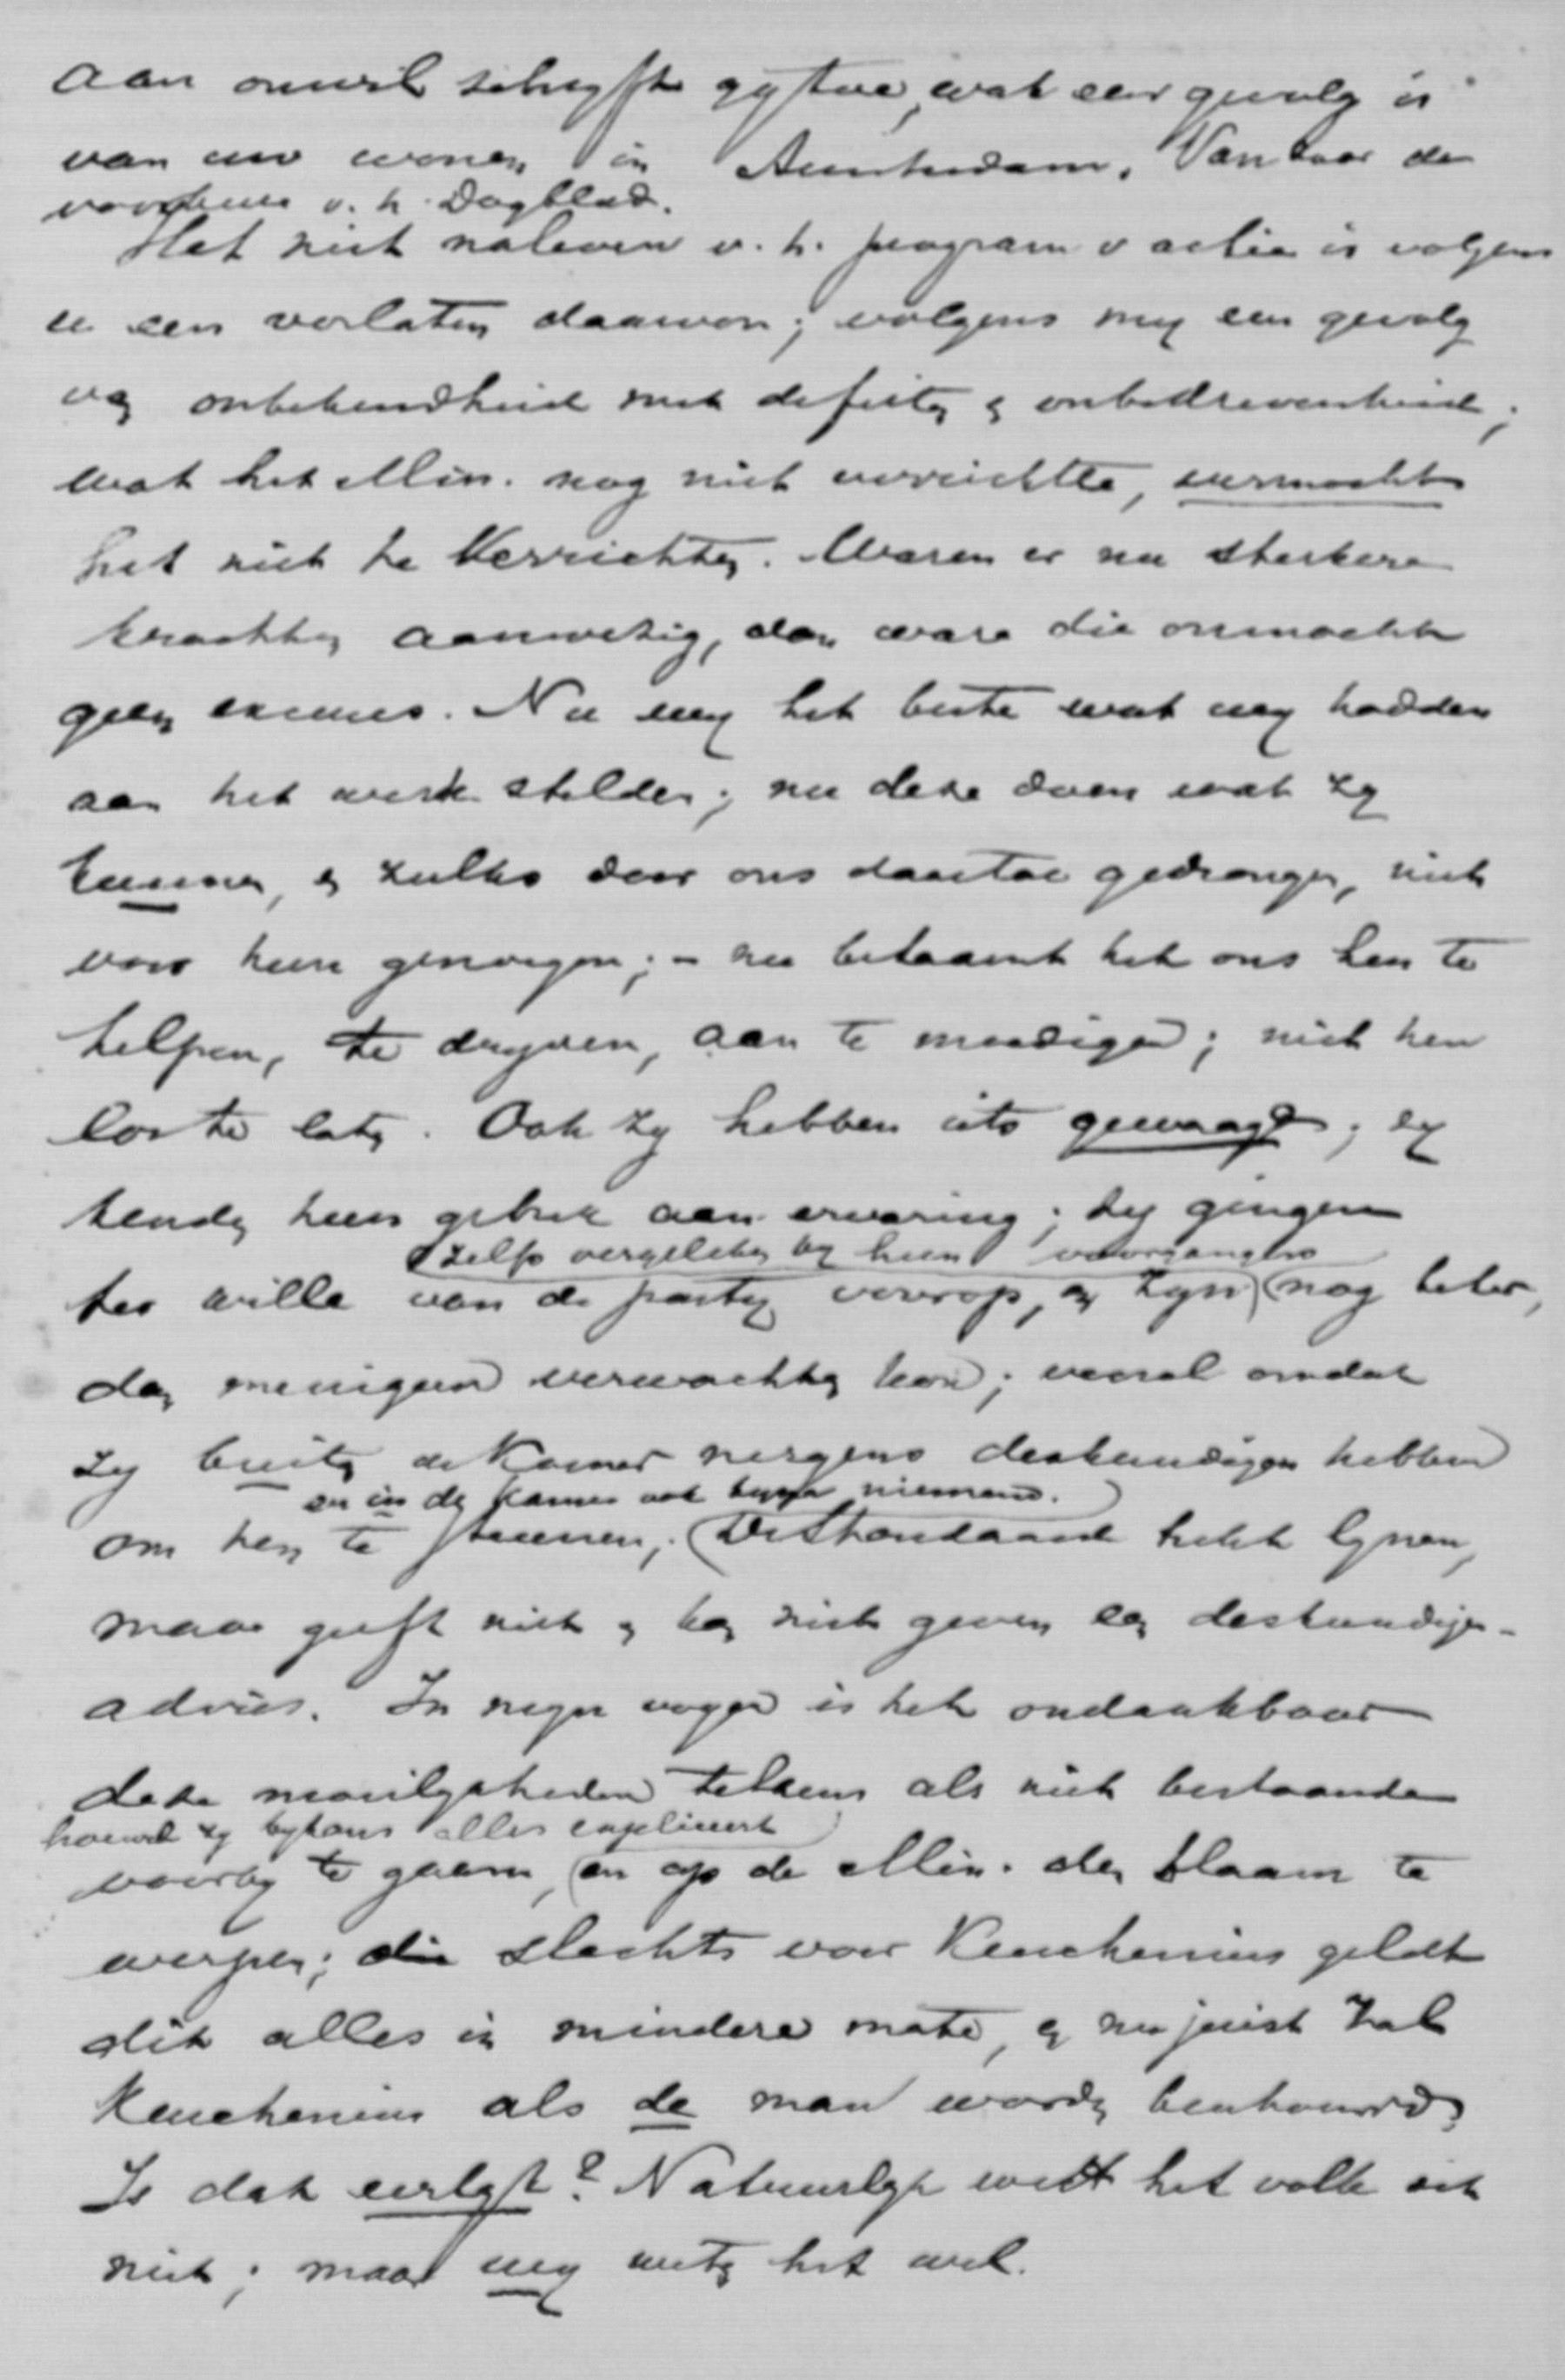 aan onwil schryft gy toe, wat een gevolg is
van uw wonen in Amsterdam. Van daar de
v. h. Dagblad.
Het niet naleven v. h. program v actie is volgens
u een verlaten daarvan; volgens my een gevolg
van onbekendheid met de feiten en onbedrevenheid;
wat het Min. nog niet verrichtte, vermocht
het niet te verrichten. Waren er nu sterkere
krachten aanwezig, dan ware die onmacht
geen excuus. Nu wy het beste wat wy hadden
aan het werk stelden; nu deze doen wat zy
kunnen, en zulks door ons daartoe gedrongen, niet
voor hun genoegen; – nu betaamt het ons hen te
helpen, te dryven, aan te moedigen; niet hen
los te laten. Ook zy hebben iets gewaagd; zy
kenden hun gebrek aan ervaring; zy gingen
zelfs vergeleken by hun voorgangers
ter wille van de party voorop, en zyn nog beter,
dan menigeen verwachten kon; vooral omdat
zy buiten de Kamer nergens deskundigen hebben
en in de Kamer ook byna niemand.
om hen te steunen; De Standaard trekt lynen,
maar geeft niet en kan niet geven een deskundigen-
advies. In myn oogen is het ondankbaar
deze moeilykheden telkens als niet bestaande
hoewel zy bykans alles expliceert
voorby te gaan, en op de Min. den blaam te
werpen; die slechts voor Keuchenius geldt
dit alles in mindere mate, en nu juist zal
Keuchenius als de man worden beschouwd.
Is dat eerlyk? Natuurlyk weet het volk dit
niet; maar wy weten het wel.